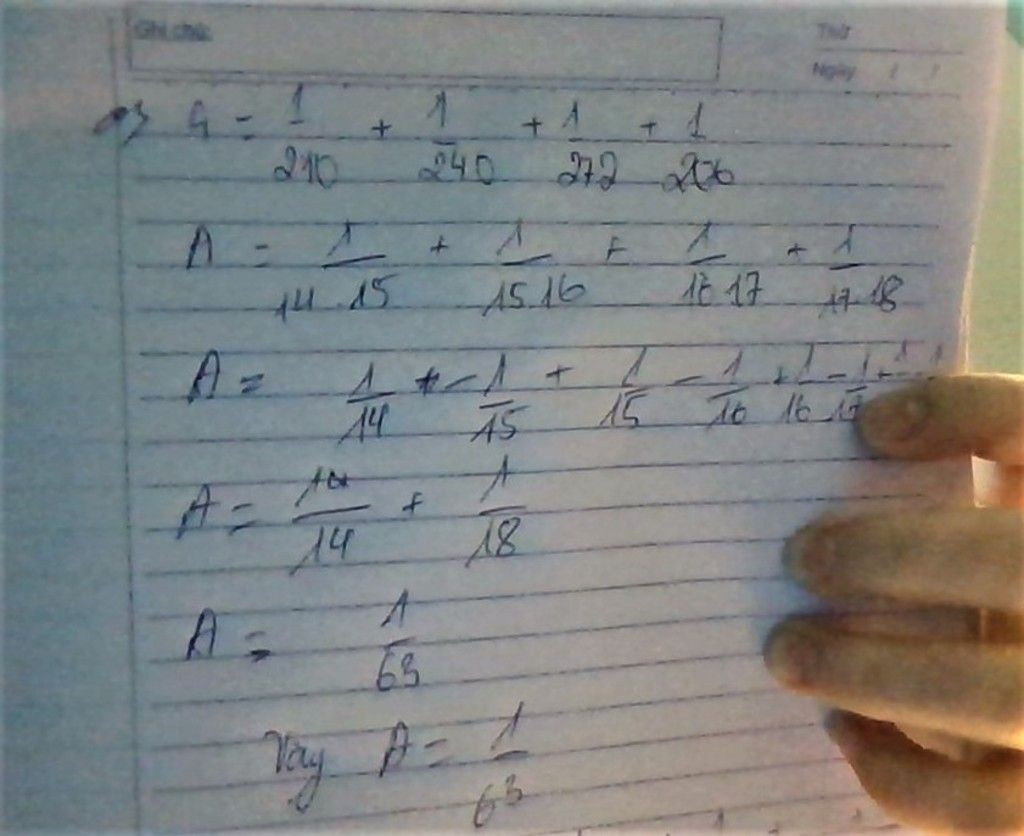 Ghi chú: Thứ
Ngày / /
a) G = 1/210 + 1/240 + 1/272 + 1/206
A = 1/14.15 + 1/15.16 + 1/16.17 + 1/17.18
A = 1/14 - 1/15 + 1/15 - 1/16 + 1/16 - 1/17 + 1 - 1
A = 1/14 + 1/18
A = 1/63
Vay A = 1/63